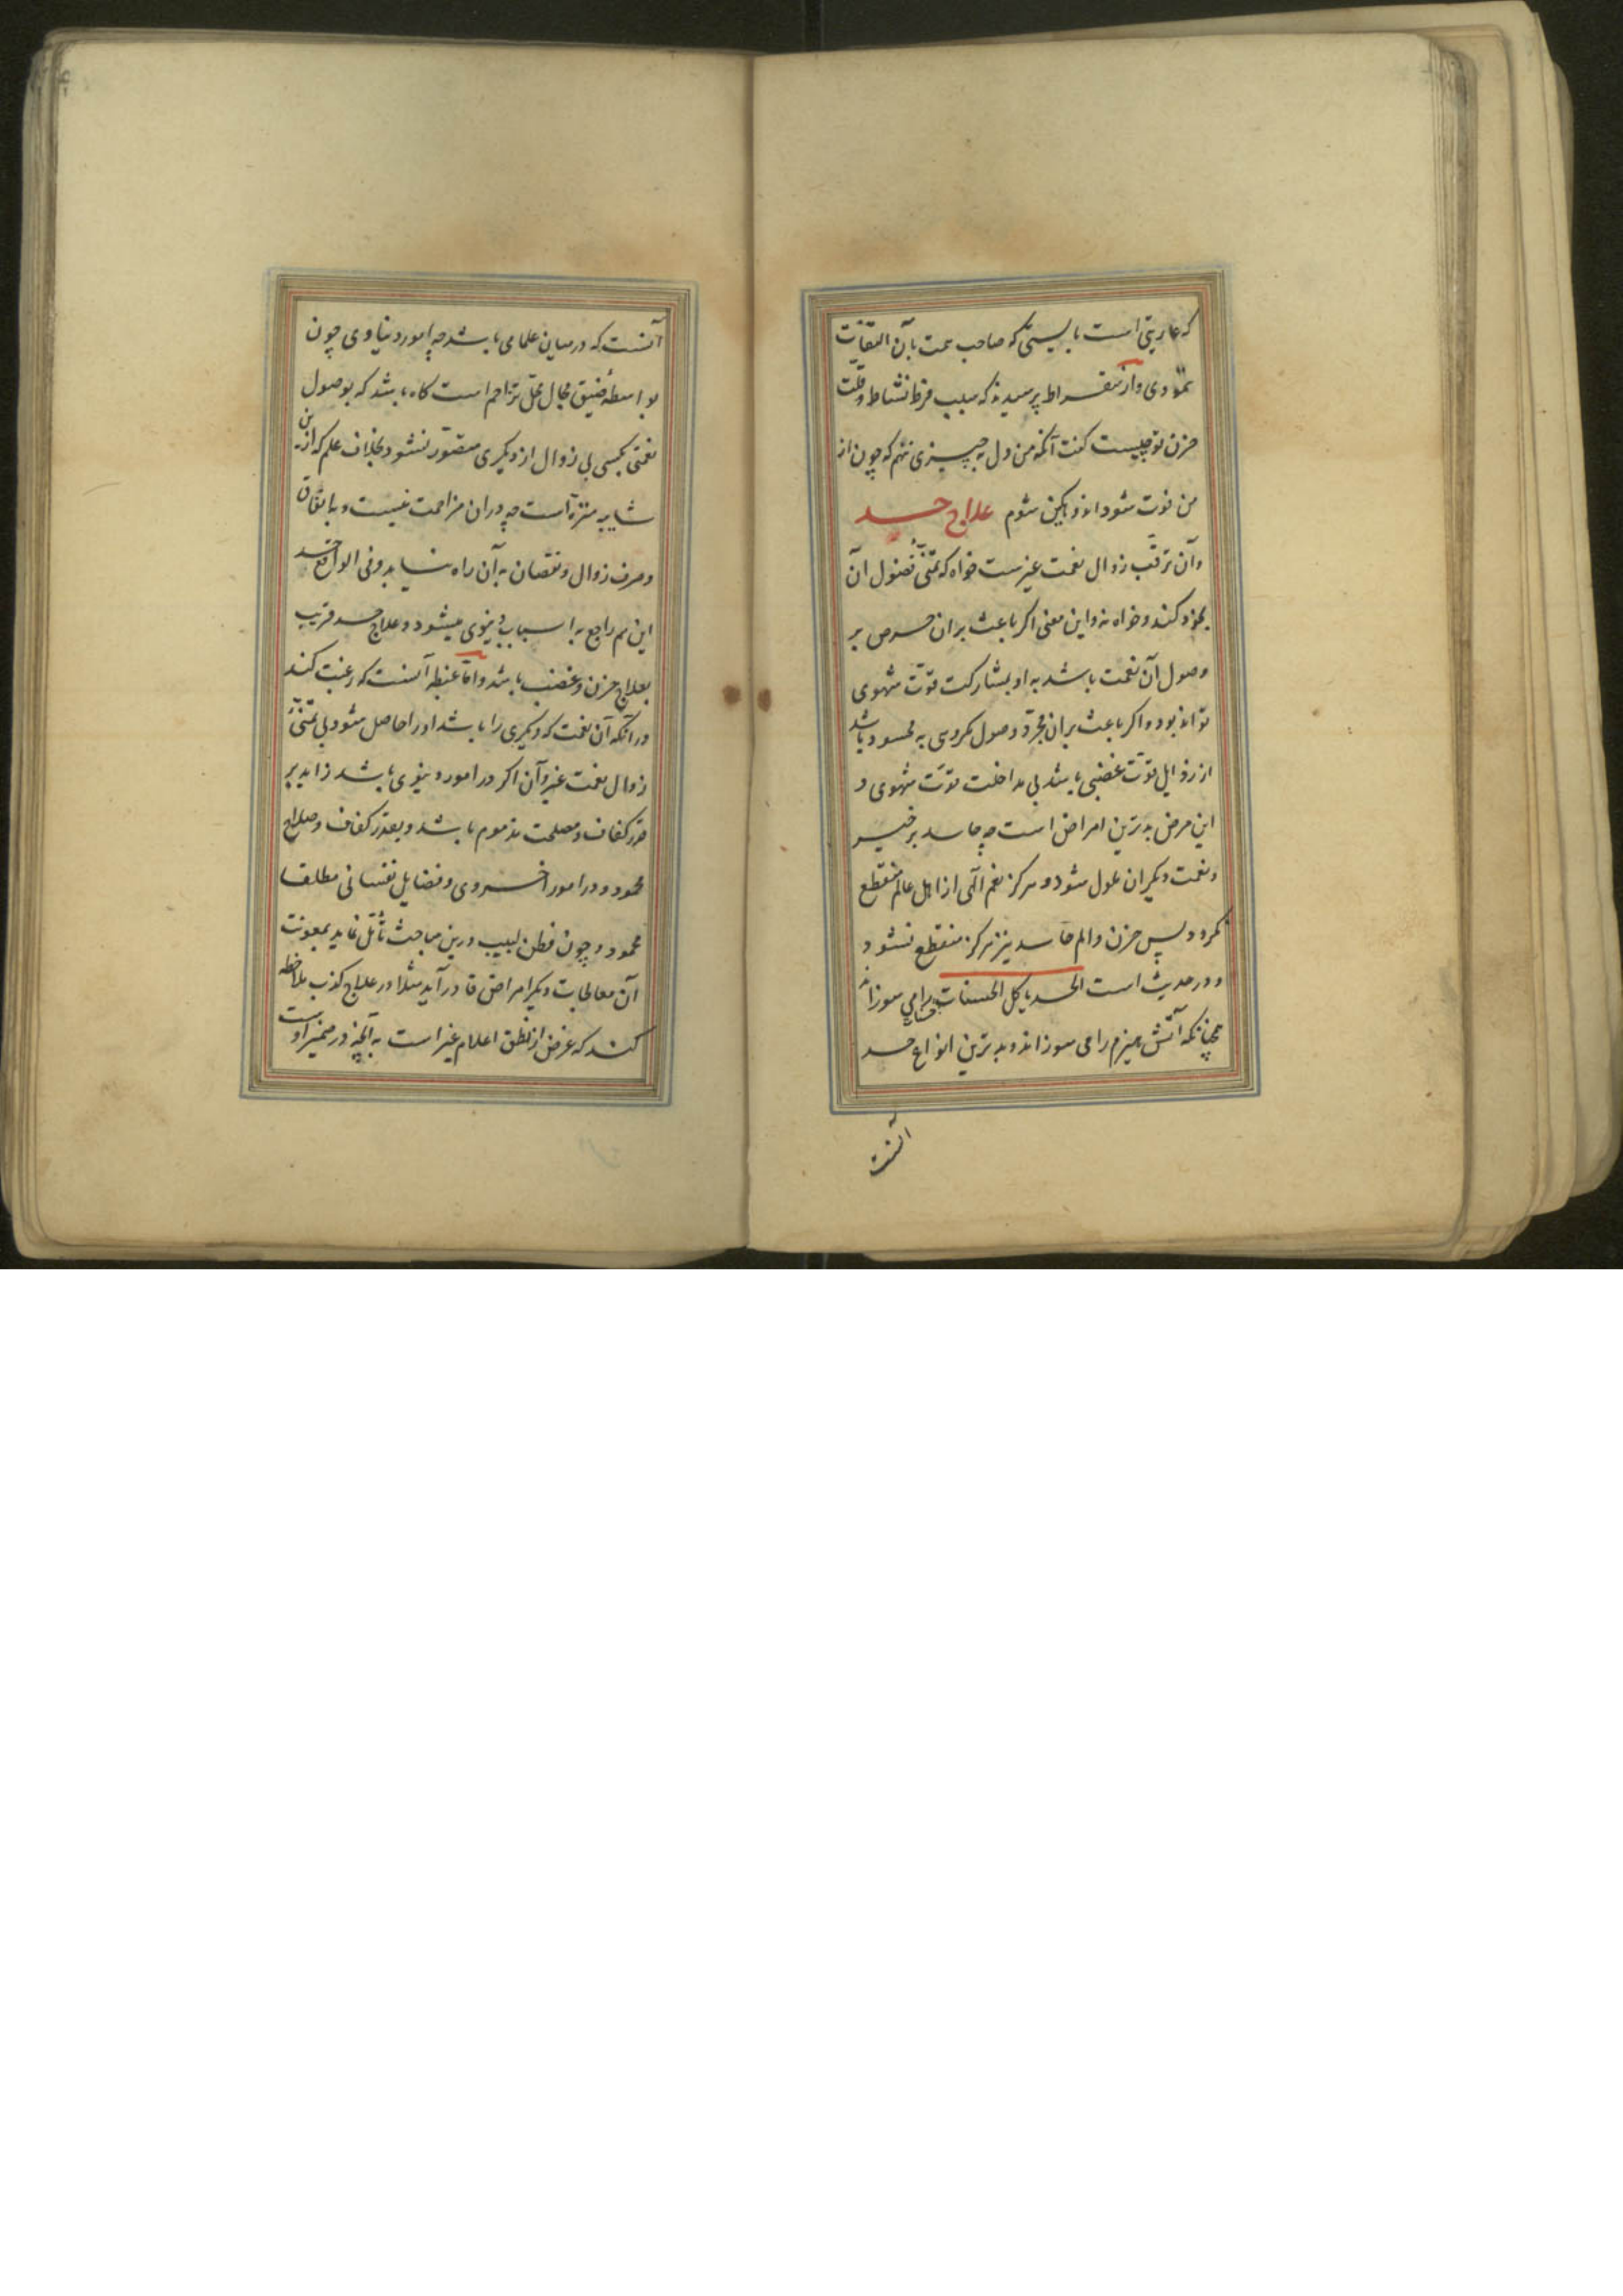 که عاریتی است بایستی که صاحب همت بآن التفات
ننمودی و از سقراط پرسیدند که سبب فرط نشاط و قلت
حزن تو چیست کفت آنکه من دل بر چیزی ننهم که چون از
من فوت شود اندوهکین شوم علاج حسد
و آن ترقب زوال نعمت غیرست خواه که تمنی فضول آن
بخود کند و خواه نه و این معنی اکر باعث بران حرص بر
وصول آن نعمت باشد به او بمشارکت قوت شهوی
تواند بود و اکر باعث بران مجرد وصول مکروهی به محسود باشد
از رذایل قوت غضبی باشد بی مداخلت قوت شهوی و
این مرض بدترین امراض است چه حاسد بر خیر
و نعمت دیکران ملول شود و هرکز نعم الهی از اهل عالم منقطع
نکردد پس حزن و الم حاسد نیز هرکز منقطع نشود
و در حدیث است الحسد یاکل الحسنات حسنات را می سوزاند
همچنانکه آتش هیزم را می سوزاند و بدترین انواع حسد
آنست
آنست که در میان علما می باشد چه امور دنیاوی چون
بواسطه ضیق مجال محل تزاحم است کاه باشد که بوصول
نعمتی بکسی بی زوال از دیکری متصور نشود بخلاف علم که ازین
شایبه منزه است چه دران مزاحمت نیست و بانفاق
و صرف زوال و نقصان به آن راه نیابد و فی الواقع حسد
این هم راجع به اسباب دنیوی میشود و علاج حسد قریب
بعلاج حزن و غضب باشد و اما غبطه آنست که رغبت کند
در آنکه آن نعمت که دیکری را باشد او را حاصل شود بی تمنی
زوال نعمت غیر و آن اکر در امور دنیوی باشد زاید بر
قدر کفاف و مصلحت مذموم باشد و بقدر کفاف و صلاح
محمود و در امور اخروی و فضایل نفسانی مطلقا
محمود و چون فطن لبیب درین مباحث تأمل نماید بمعونت
آن معالجات دیکر امراض قادر آید مثلا در علاج کذب ملاحظه
کند که غرض از نطق اعلام غیر است به آنچه در ضمیر اوست